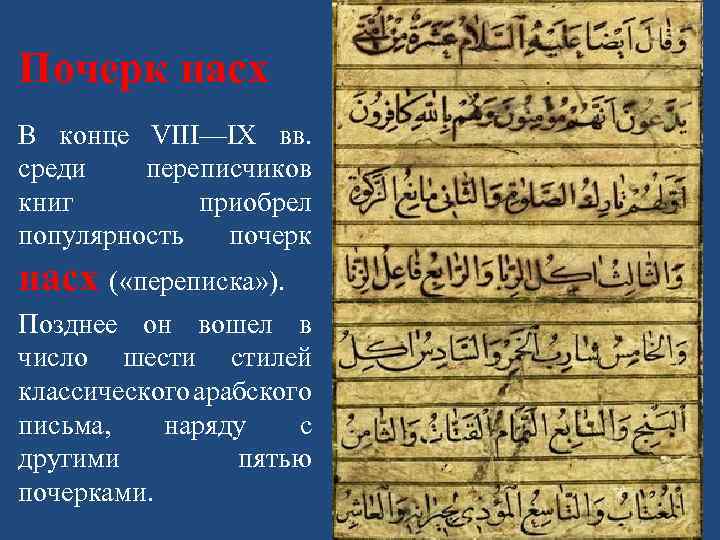 Почерк насх
В конце VIII—IX вв.
среди переписчиков
книг приобрел
популярность почерк
насх («переписка»).
Позднее он вошел в
число шести стилей
классического арабского
письма, наряду с
другими пятью
почерками.
وَقَالَ اَيْضًا عَلَيْهِ السَّلَامُ عَشَرَةٌ مِنْ اُمَّتِي
يَدَّعُونَ اَنَّهُمْ مُؤْمِنُونَ وَهُمْ بِاللهِ كَافِرُونَ
اَوَّلُهُمْ تَارِكُ الصَّلَوةِ وَالثَّانِي مَانِعُ الزَّكَوةِ
وَالثَّالِثُ اٰكِلُ الرِّبَا وَالرَّابِعُ فَاعِلُ الزِّنَا
وَالْخَامِسُ شَارِبُ الْخَمْرِ وَالسَّادِسُ اٰكِلُ
الْبَنْجِ وَالسَّابِعُ النَّمَّامُ الْقَتَّاتُ وَالثَّامِنُ
الْمُغْتَابُ وَالتَّاسِعُ الْمُؤْذِي بِجِيرَانِهِ وَالْعَاشِرُ